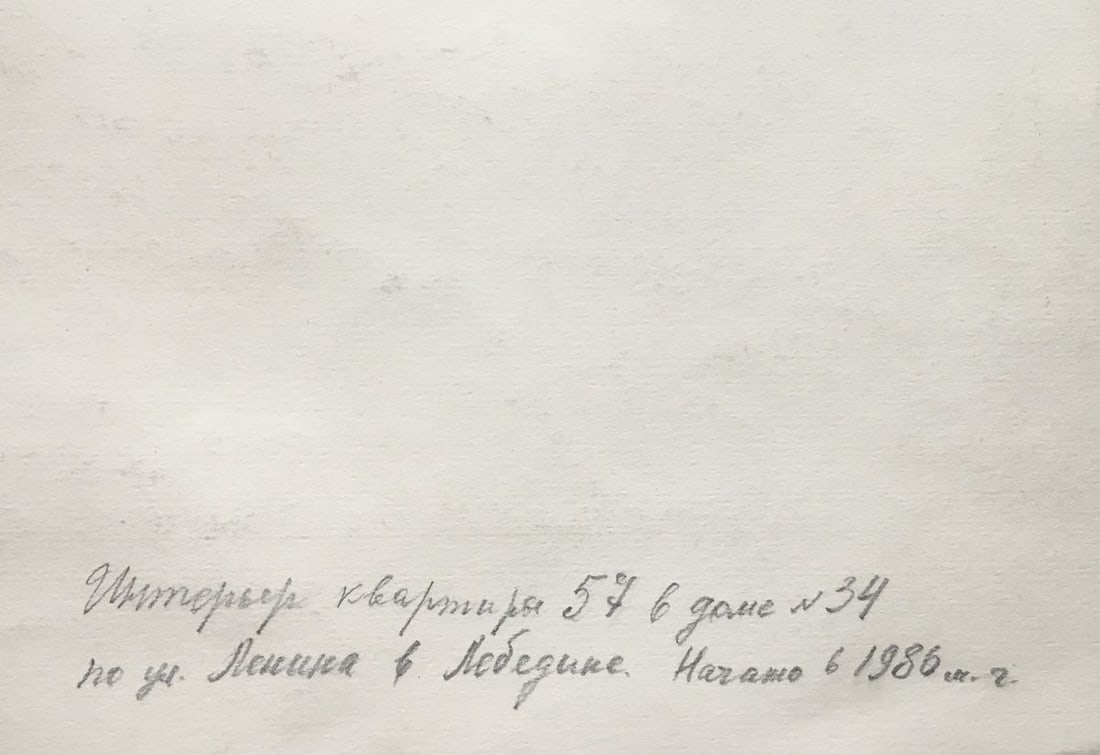 Интерьер квартиры 57 в доме №34
по ул. Ленина в Лебедине. Начато в 1986 м. г.